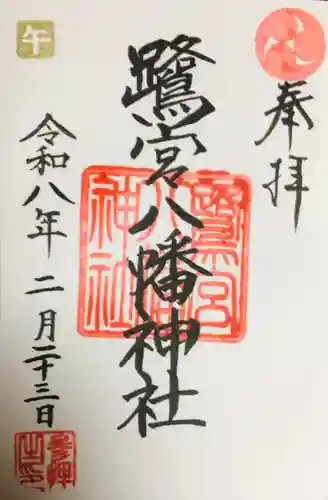 奉拝
鷺宮八幡神社
鷺宮八幡神社
午
令和八年 二月二十三日